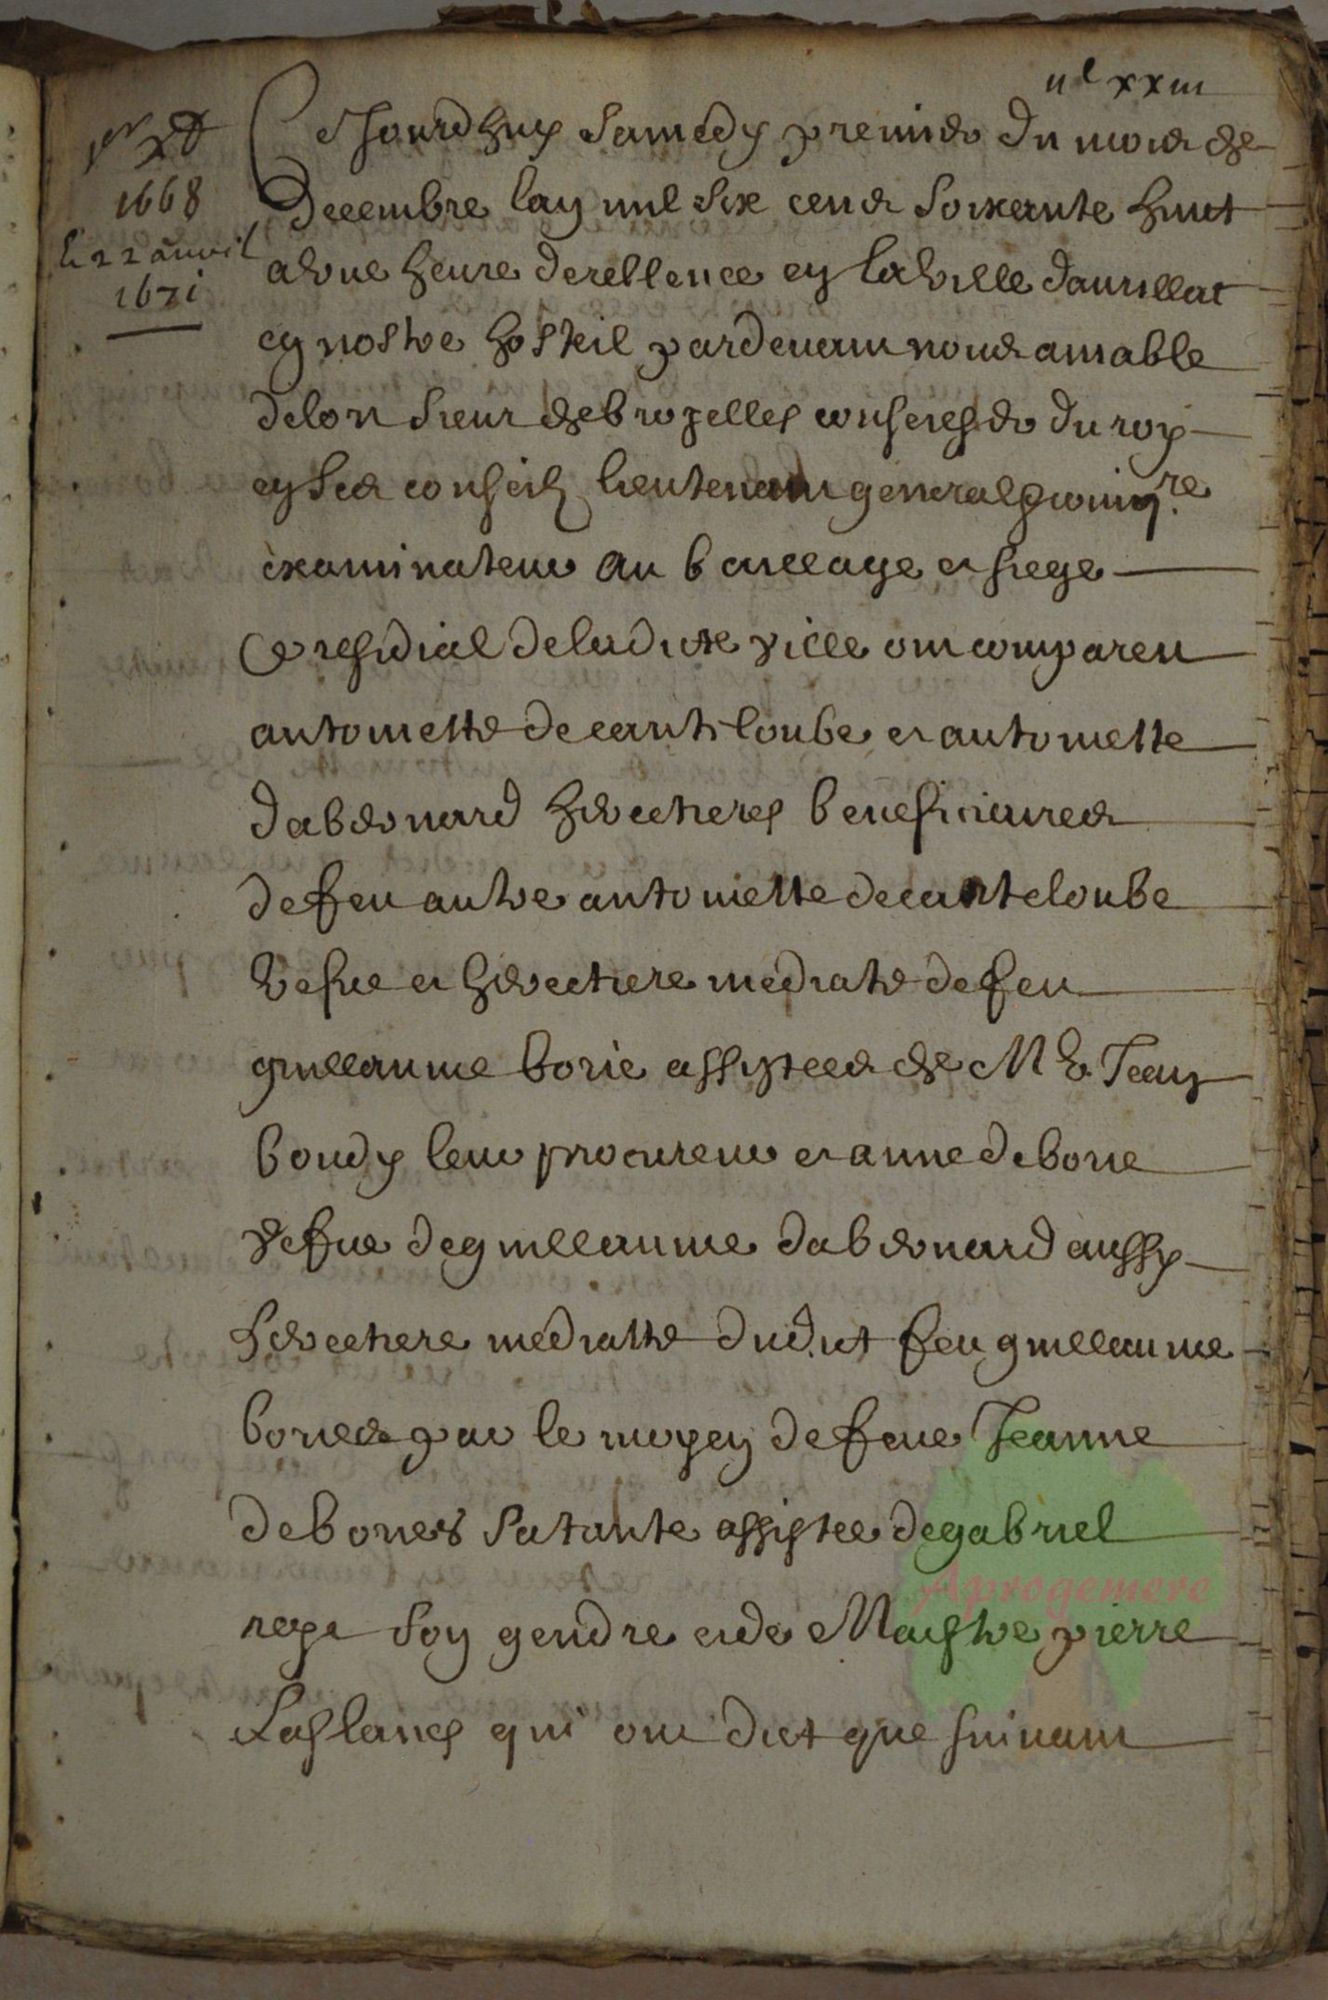 iiᶜ xxiii
1er xbre
1668
le 22 auvril
1671
Ce Jourdhuy Samedy premier du mois de
Decembre lan mil six cens soixante huict
a une heure de rellevee en la ville daurillac
en nostre hosteil pardevant nous amable
delort sieur de bropelles conseiller du roy
en ses conseilz lieutenant general
examinateur au bailliage et siege
presidial de ladicte ville ont comparu
antoinette de canteloube et antoinette
dabernard heretieres beneficiaires
de feu autre antoinette decanteloube
vefue et heretiere mediate de feu
guillaume borie assistees de Me Jean
boudy leur procureur et anne de borie
vefue de guillaume dabernard aussy
heretiere mediatte dudict feu guillaume
bories par le moyen de feue Jeanne
de bories sa tante assistee de gabriel
reyt son gendre et de Maistre pierre
Laslanes qui ont dict que suivant
Aprogemere